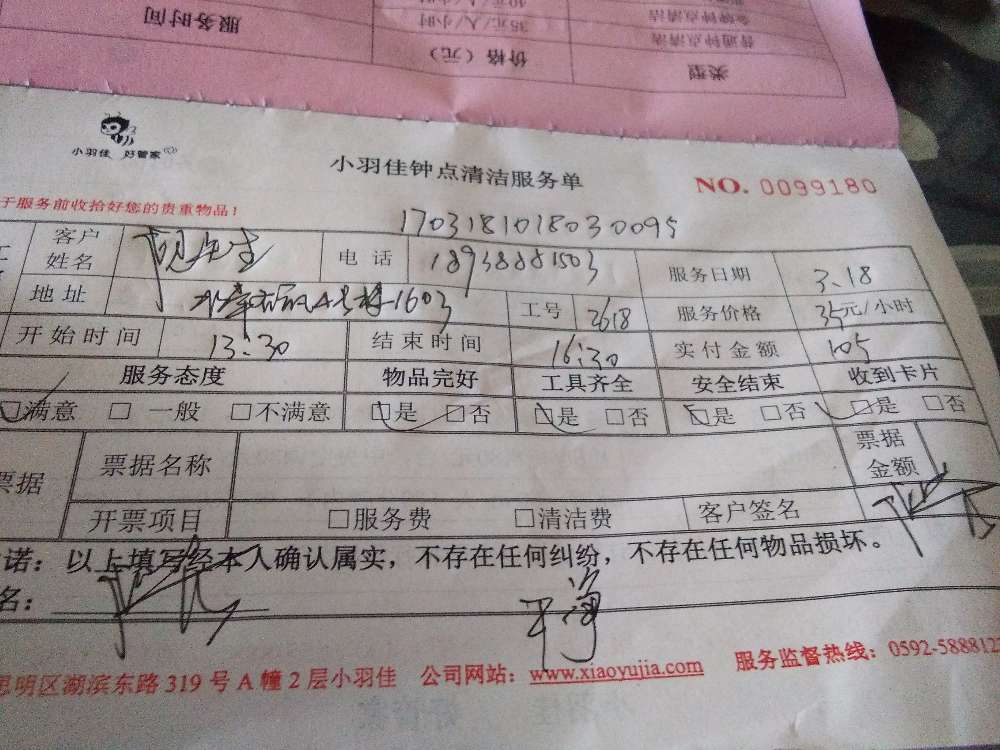 服务时间
40元/人/小时
35元/人/小时
价格（元）
金牌钟点清洁
普通钟点清洁
类型
小羽佳 好管家
小羽佳钟点清洁服务单
NO. 0099180
于服务前收拾好您的贵重物品！
1703181018030095
客户姓名 先生 电话 18938881503 服务日期 3.18
地址 1603 工号 2618 服务价格 35元/小时
开始时间 13:30 结束时间 16:30 实付金额 105
服务态度 物品完好 工具齐全 安全结束 收到卡片
□满意 □一般 □不满意 □是 □否 □是 □否 □是 □否 □是 □否
票据 票据名称 票据金额
开票项目 □服务费 □清洁费 客户签名
诺：以上填写经本人确认属实，不存在任何纠纷，不存在任何物品损坏。
名：
干净
思明区湖滨东路319号A幢2层小羽佳 公司网站：www.xiaoyujia.com 服务监督热线：0592-588812